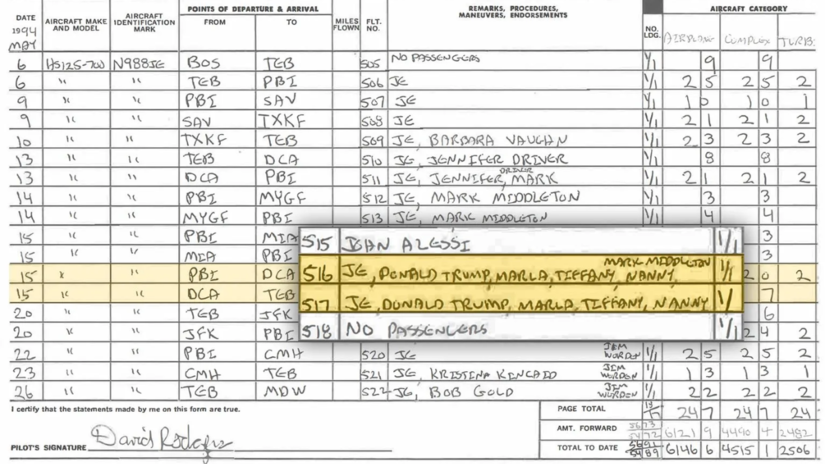 DATE 1994 AIRCRAFT MAKE AND MODEL AIRCRAFT IDENTIFICATION MARK POINTS OF DEPARTURE & ARRIVAL FROM TO MILES FLOWN FLT. NO. REMARKS, PROCEDURES, MANEUVERS, ENDORSEMENTS NO. LDG. AIRCRAFT CATEGORY
MAY AIRPLANE COMPLEX TURB.
6 HS125-700 N988JE BOS TEB 505 NO PASSENGERS 1/1 9 9
6 " " TEB PBI 506 JE 1/1 2 5 2 5 2
9 " " PBI SAV 507 JE 1/1 1 0 1 0 1
9 " " SAV TXKF 508 JE 1/1 2 1 2 1 2
10 " " TXKF TEB 509 JE, BARBARA VAUGHN 1/1 2 3 2 3 2
13 " " TEB DCA 510 JE, JENNIFER DRIVER 1/1 8 8
13 " " DCA PBI 511 JE, JENNIFER DRIVER, MARK 1/1 2 1 2 1 2
14 " " PBI MYGF 512 JE, MARK MIDDLETON 1/1 3 3
14 " " MYGF PBI 513 JE, MARK MIDDLETON 1/1 4 4
15 " " PBI MIA 3
15 " " MIA PBI 515 JOAN ALESSI 1/1 3
15 " " PBI DCA 516 JE, DONALD TRUMP, MARLA, TIFFANY, NANNY, MARK MIDDLETON 1/1 2 0 2
15 " " DCA TEB 517 JE, DONALD TRUMP, MARLA, TIFFANY, NANNY 1/1 7
20 " " TEB JFK 518 NO PASSENGERS 1/1 6
20 " " JFK PBI 2 4 2
22 " " PBI CMH 520 JE JIM WORDEN 1/1 2 5 2 5 2
23 " " CMH TEB 521 JE, KRISTINA KINCAID JIM WORDEN 1/1 1 3 1 3 1
26 " " TEB MDW 522 JE, BOB GOLD JIM WORDEN 1/1 2 2 2 2 2
I certify that the statements made by me on this form are true.
PAGE TOTAL 24 7 24 7 24
AMT. FORWARD 6121 9 4490 4 2482
PILOT'S SIGNATURE David Rodgers
TOTAL TO DATE 6146 6 4515 1 2506